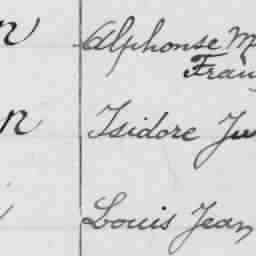 n Alphonse M
Fran
n Isidore Ju
Louis Jean